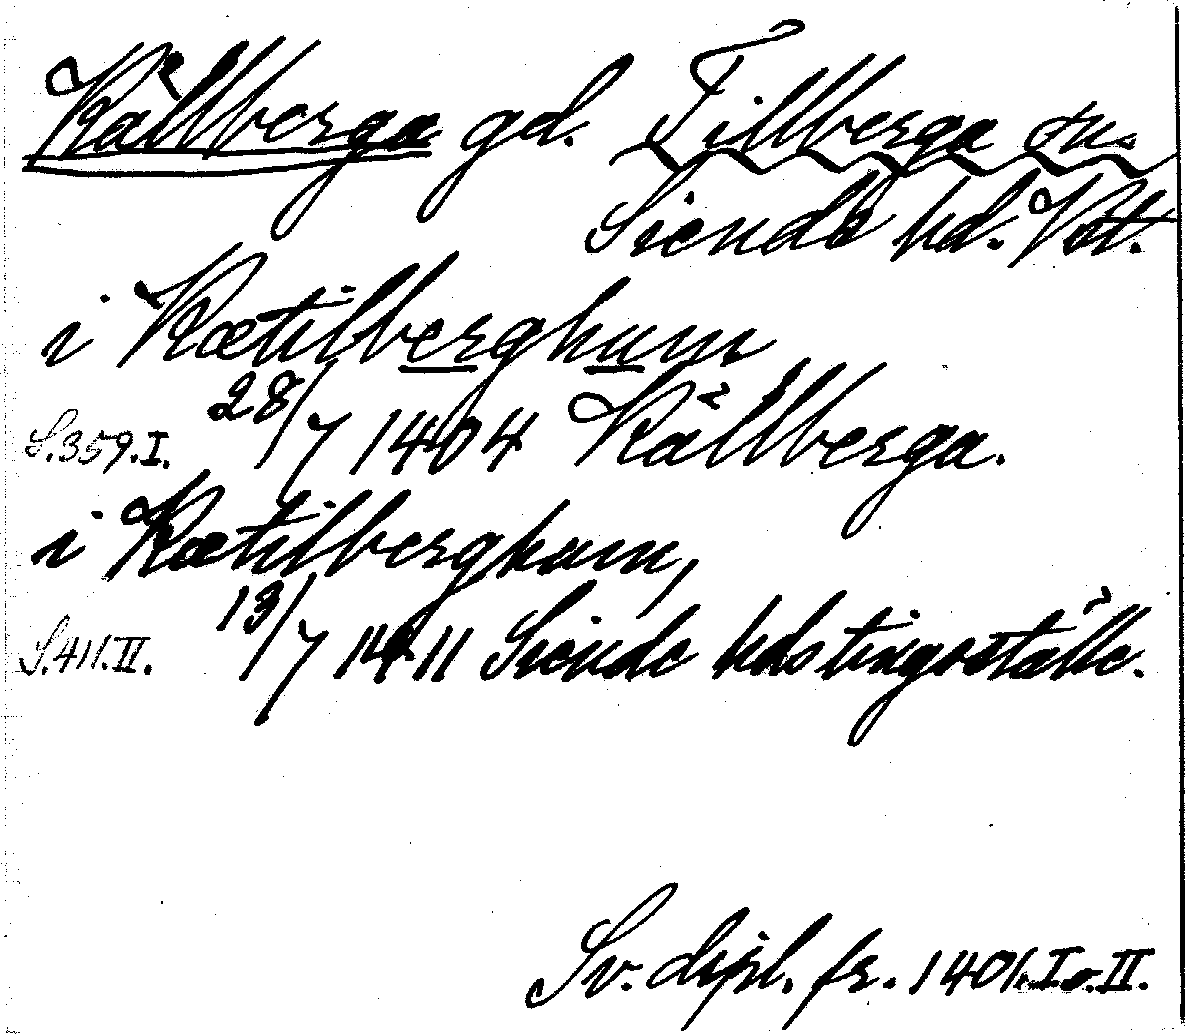 Källberga gd. Tillberga sn.
Siende hd. Vstl.
i Kætilberghum
S.359.I. 28/7 1404 Källberga.
i Kætilberghum,
S.411.II. 13/7 1411 Siende hds tingsställe.
Sv. dipl. fr. 1401.I o. II.